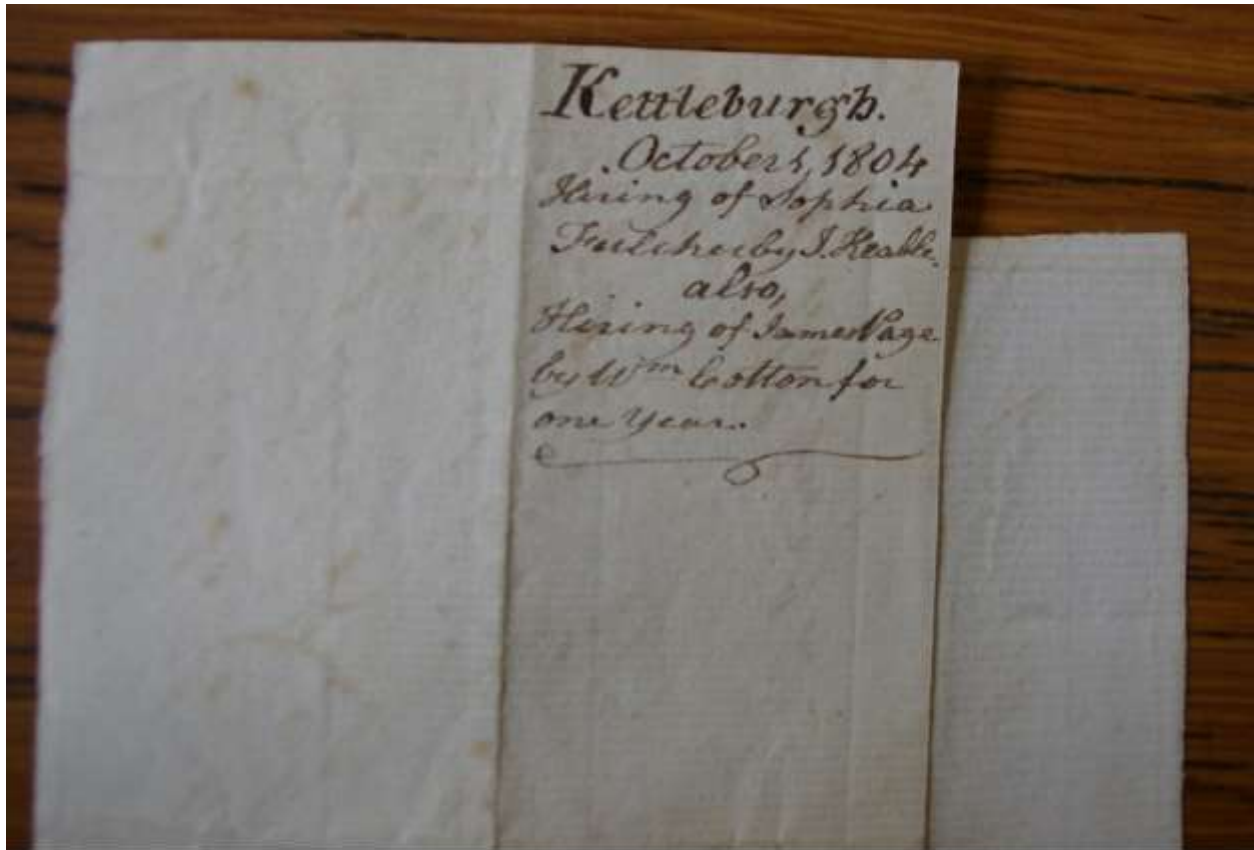 Kettleburgh.
October 1, 1804
Hiring of Sophia
Fulcher by J. Keable.
also,
Hiring of James Page
by Wm Cotton for
one Year.